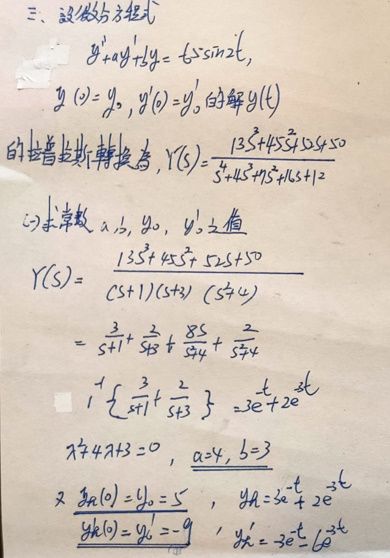 三、設微分方程式
y''+ay'+by=65sin2t,
y(0)=y₀, y'(0)=y₀'的解y(t)
的拉普拉斯轉換為, Y(s)=(13S³+45S²+52S+50)/(S⁴+4S³+7S²+16S+12)
(一)求常數 a, b, y₀, y₀'之值
Y(S)=(13S³+45S²+52S+50)/((S+1)(S+3)(S²+4))
=3/(S+1)+2/(S+3)+8S/(S²+4)+2/(S²+4)
L⁻¹{3/(S+1)+2/(S+3)}=3e^-t+2e^-3t
λ²+4λ+3=0, a=4, b=3
又 yh(0)=y₀=5, yh=3e^-t+2e^-3t
yh'(0)=y₀'=-9, yh'=-3e^-t-6e^-3t